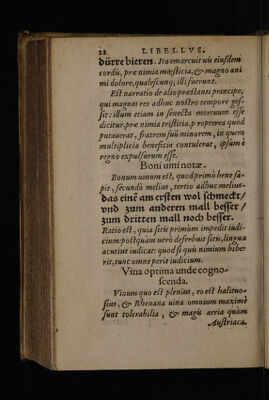 22 LIBELLVS.
dürre bieren. Ita emarcuit uis eiusdem
cordis, præ nimia mœsticia, & magno ani
mi dolore, qualescunq; illi fuerunt.
Est narratio de alio præstanti principe,
qui magnas res adhuc nostro tempore ges-
sit: illum etiam in senecta mortuum esse
dicitur, præ nimia tristitia, propterea quod
putauerat, fratrem suum minorem, in quem
multiplicia beneficia contulerat, ipsum è
regno expulsurum esse.
Boni uini notæ.
Bonum uinum est, quod primò bene sa-
pit, secundò melius, tertio adhuc melius-
das eine am ersten wol schmeckt/
vnd zum anderen mall besser/
zum dritten mall noch besser.
Ratio est, quia sitis primùm impedit iudi-
cium: postquàm uerò deferbuit sitis, lingua
acutius iudicat: quod si quis nimium bibe-
rit, tunc omne perit iudicium.
Vina optima unde cogno-
scenda.
Vinum quo est plenius, eo est halituo-
sius, & Rhenana uina omnium maximè
sunt tolerabilia, & magis aeria quàm
Austriaca.